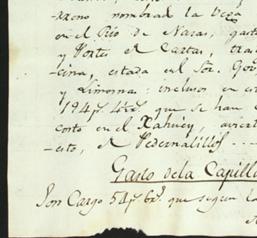 -rreno nombrad. la Vega
en el Rio de Nasas, gasto
y Portes de Cartas, tra
-cina, estada en l Sor. Gov
y Limosna: inclusos en es
194 p. 4 rr. que se han
costo en el Xahuey, aviert
-esto, el Pedernalillo
Gasto dela Capilla
Son Cargo 54 p. 6 rr. que segun la